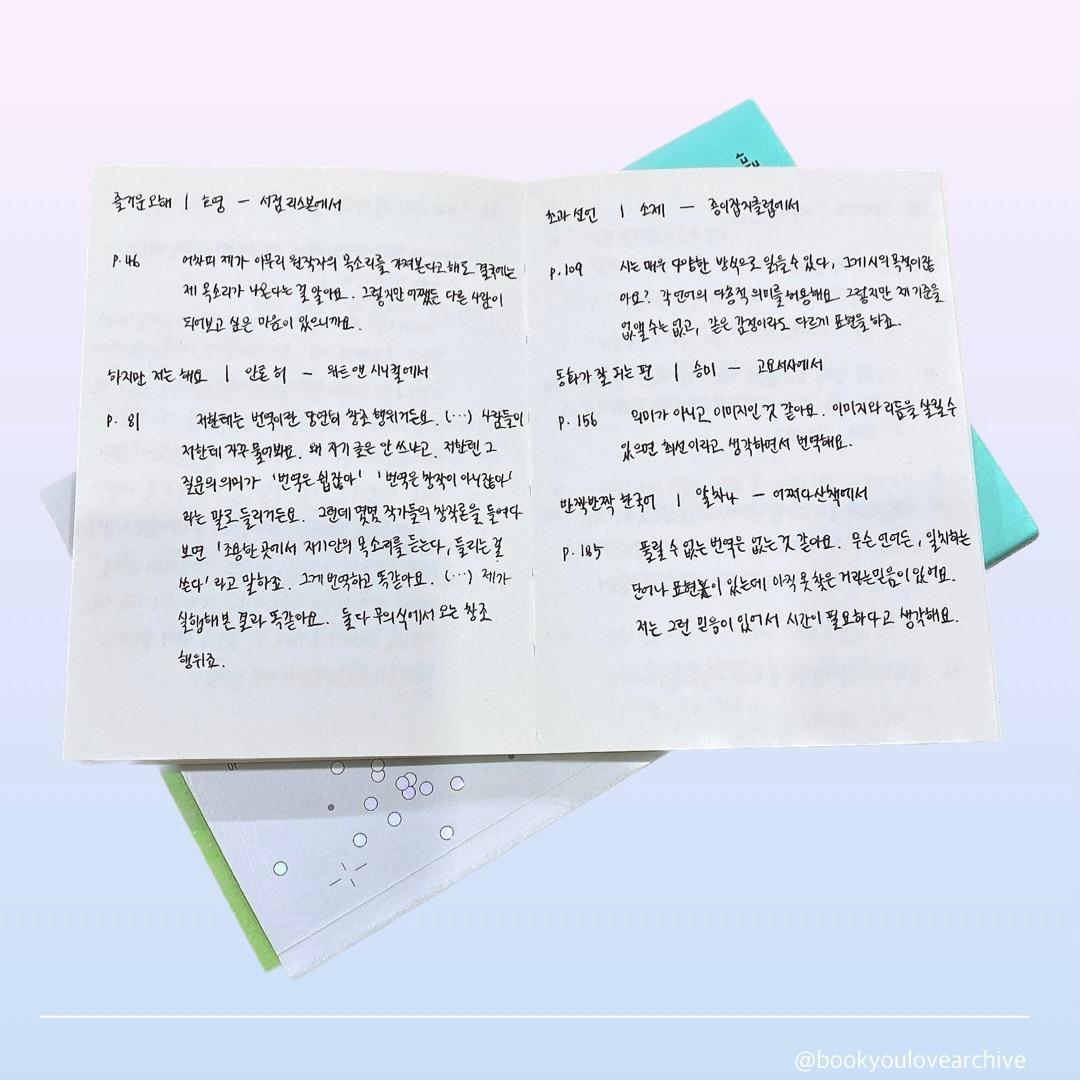 즐거운 오해 | 호영 — 서점 리스본에서
p. 46 어차피 제가 아무리 원작자의 목소리를 가져본다고 해도 결국에는
제 목소리가 나온다는 걸 알아요. 그렇지만 어쨌든 다른 사람이
되어보고 싶은 마음이 있으니까요.
하지만 저는 해요 | 안톤 허 — 위트 앤 시니컬에서
p. 81 저한테는 번역이란 당연히 창조 행위거든요. (…) 사람들이
저한테 자꾸 물어봐요. 왜 자기 글은 안 쓰냐고. 저한텐 그
질문의 의미가 '번역은 쉽잖아' '번역은 창작이 아니잖아'
라는 말로 들리거든요. 그런데 몇몇 작가들의 창작론을 들여다
보면 '조용한 곳에서 자기 안의 목소리를 듣는다, 들리는 걸
쓴다' 라고 말하죠. 그게 번역하고 똑같아요. (…) 제가
실험해 본 결과 똑같아요. 둘 다 무의식에서 오는 창조
행위죠.
초과 선언 | 소제 — 종이잡지클럽에서
p. 109 시는 매우 다양한 방식으로 읽을 수 있다, 그게 시의 목적이잖
아요? 각 언어의 다층적 의미를 허용해요. 그렇지만 제 기준을
없앨 수는 없고, 같은 감정이라도 다르게 표현을 하죠.
동화가 잘 되는 편 | 승미 — 고요서사에서
p. 156 의미가 아니고 이미지인 것 같아요. 이미지와 리듬을 살릴 수
있으면 최선이라고 생각하면서 번역해요.
반짝반짝 한국어 | 알차나 — 어쩌다 산책에서
p. 185 풀릴 수 없는 번역은 없는 것 같아요. 무슨 언어든, 일치하는
단어나 표현이 있는데 아직 못 찾은 거라는 믿음이 있어요.
저는 그런 믿음이 있어서 시간이 필요하다고 생각해요.
01
@bookyoulovearchive